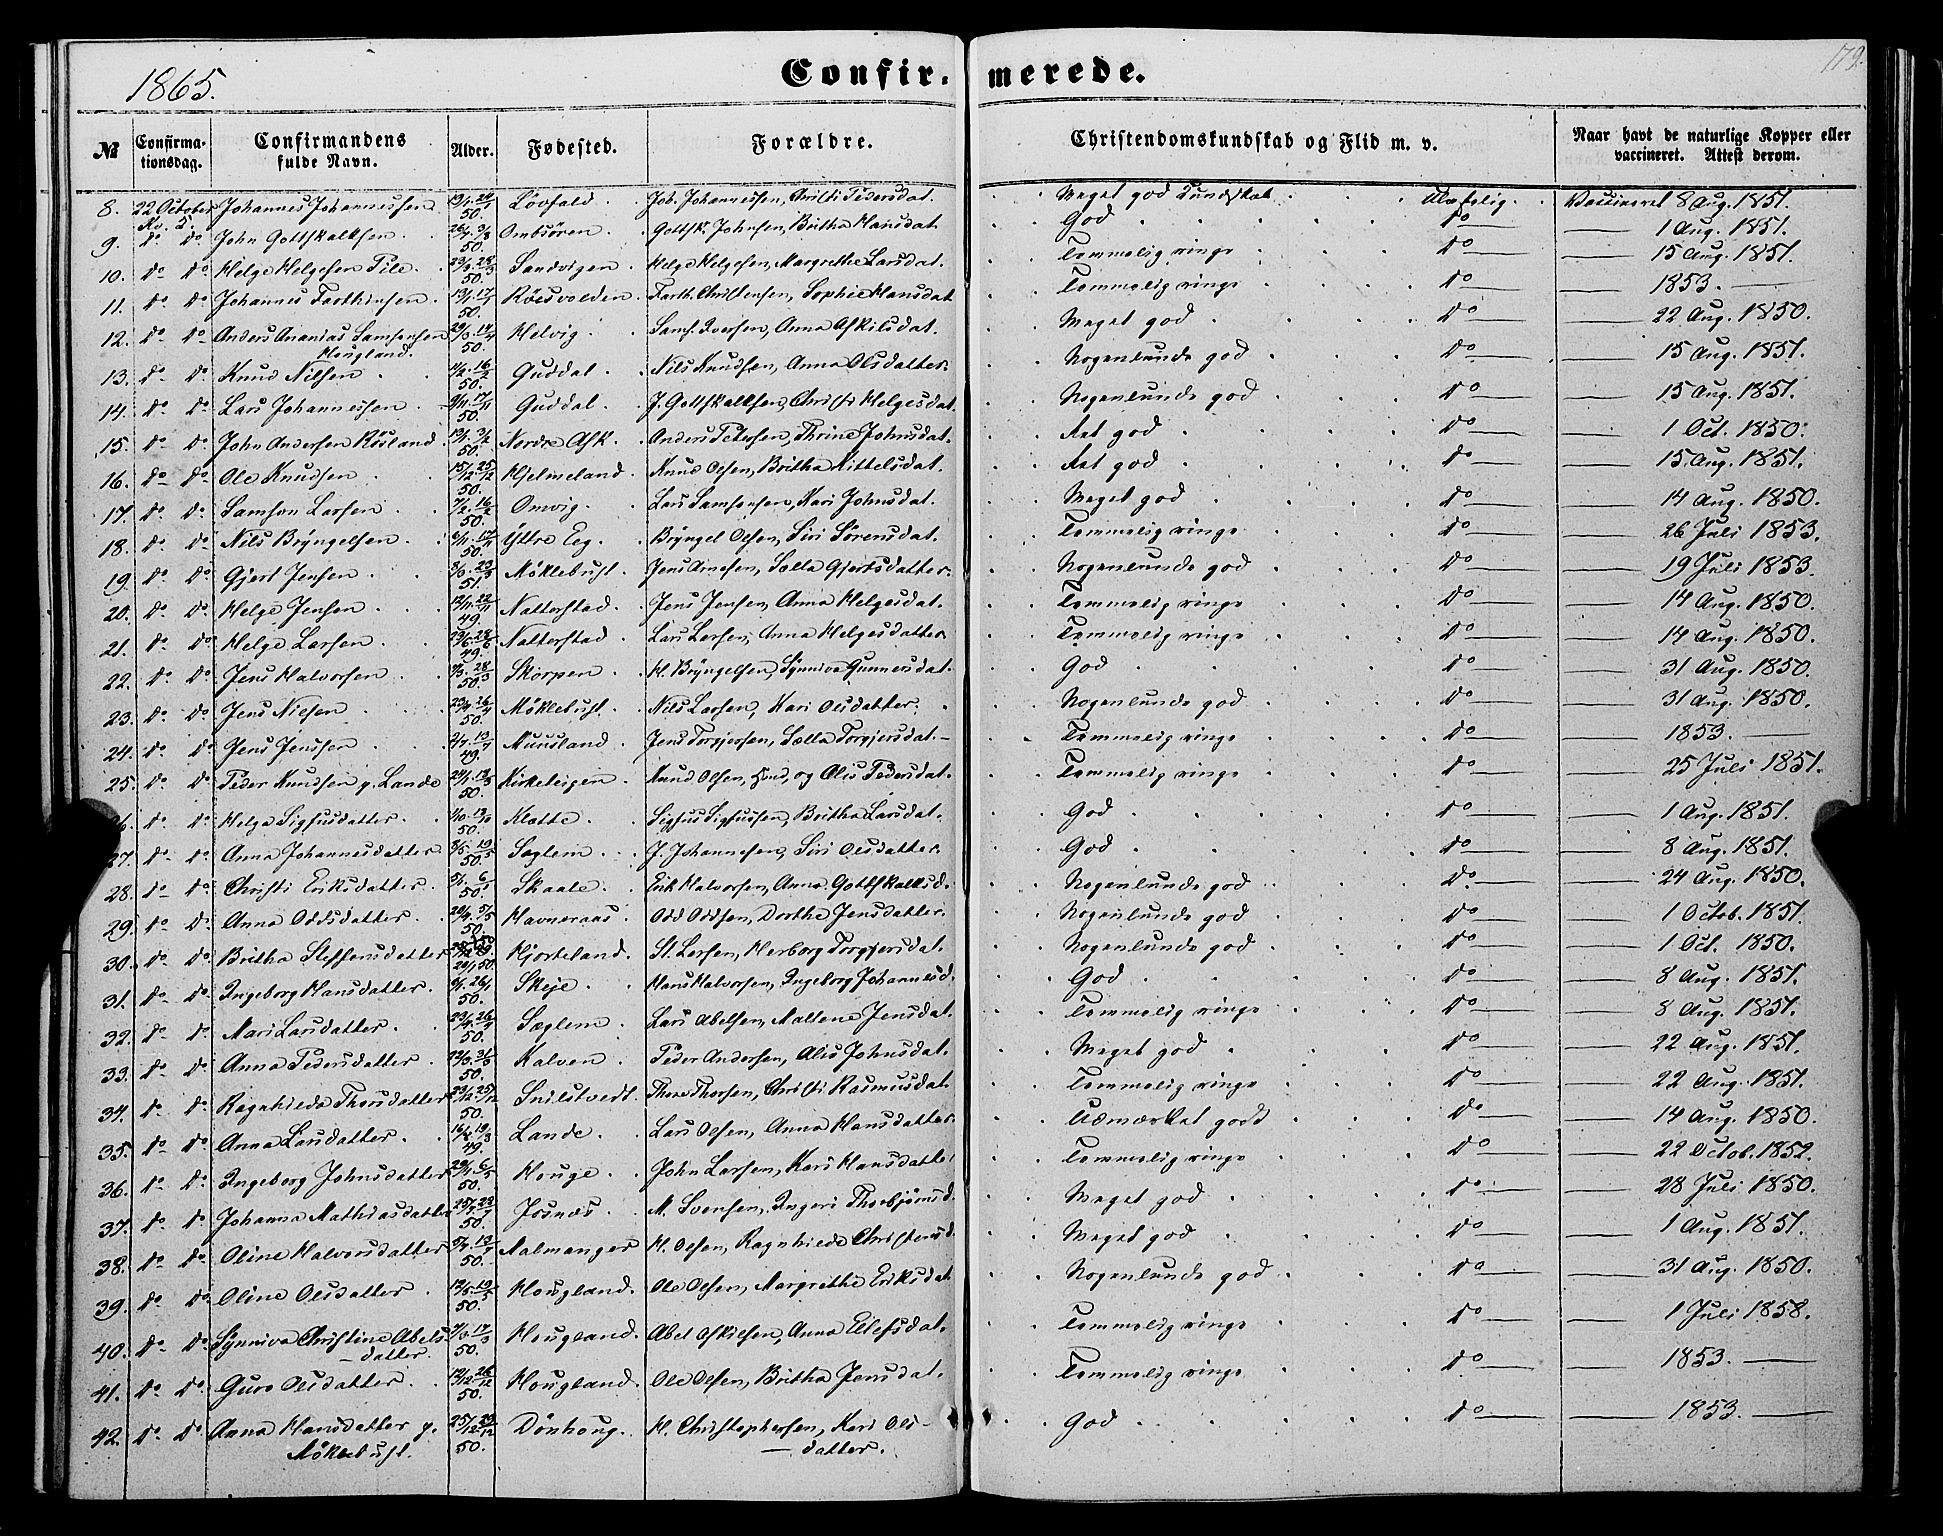 179.
1865.
Confir- merede.
№ Confirma-tionsdag. Confirmandens fulde Navn. Alder. Fødested. Forældre. Christendomskundskab og Flid m. v. Naar havt de naturlige Kopper eller vaccineret. Attest derom.
8. 22 October Johannes Johannessen 50. Løvfald Joh. Johannessen, Christi Pedersdat. Meget god Kundskab Vaccineret 8 Aug. 1851.
9. do do John Gottskalksen 50. Ombsøren Gottsk. Johnsen, Britha Hansdat. God do 1 Aug. 1851.
10. do do Helge Helgesen Pile 50. Sandvigen Helge Helgesen, Margrethe Larsdat. Temmelig ringe do 15 Aug. 1851.
11. do do Johannes Farthinsen 50. Røesvolden Farth. Christensen, Sophie Hansdat. Temmelig ringe do 1853.
12. do do Anders Ananias Samsonsen Hougland. 50. Helvig Sams. Iversen, Anna Askilsdat. Meget god do 22 Aug. 1850.
13. do do Knud Nilsen 50. Guddal Nils Knudsen, Anna Olsdatter. Nogenlunde god do 15 Aug. 1851.
14. do do Lars Johannessen 50. Guddal J. Gottskalksen, Christi Helgesdat. Nogenlunde god do 15 Aug. 1851.
15. do do John Andersen Røsland 50. Nordre Ask Anders Petersen, Thrine Johnsdat. Ret god do 1 Oct. 1850.
16. do do Ole Knudsen 50. Hjelmeland Knud Olsen, Britha Kittelsdat. Ret god do 15 Aug. 1851.
17. do do Samson Larsen 50. Omvig Lars Samsonsen, Kari Johnsdat. Meget god do 14 Aug. 1850.
18. do do Nils Bryngelsen 50. Yttre Eeg Bryngel Olsen, Siri Sørensdat. Temmelig ringe do 26 Juli 1853.
19. do do Gjert Jensen 51. Møklebust Jens Arnesen, Sælle Gjertsdatter Nogenlunde god do 19 Juli 1853.
20. do do Helge Jensen 49. Natterstad Jens Jensen, Anna Helgesdat. Temmelig ringe do 14 Aug. 1850.
21. do do Helge Larsen 49. Natterstad Lars Larsen, Anna Helgesdatter Temmelig ringe do 14 Aug. 1850.
22. do do Jens Halvorsen 50. Skorpen H. Bryngelsen, Synniva Gunnersdat. God do 31 Aug. 1850.
23. do do Jens Nilsen 50. Møklebust Nils Larsen, Kari Olsdatter Nogenlunde god do 31 Aug. 1850.
24. do do Jens Jensen 49. Munsland Jens Torgjersen, Sælle Torgjersdat. Temmelig ringe do 1853.
25. do do Peder Knudsen g. Lande 50. Kirketeigen Knud Olsen, og Olis Pedersdat. Temmelig ringe do 25 Juli 1851.
26. do do Helga Sigfusdatter 50. Klette Sigfus Sigfussen, Britha Larsdat. God do 1 Aug. 1851.
27. do do Anna Johannesdatter 50. Sæglem J. Johannesen, Siri Olsdatter God do 8 Aug. 1851.
28. do do Christi Eriksdatter 50. Skaale Erik Halvorsen, Anna Gottskalksd. Nogenlunde god do 24 Aug. 1850.
29. do do Anna Oddsdatter 50. Havneraas Odd Oddsen, Dorthe Jensdatter Nogenlunde god do 1 Octob. 1851.
30. do do Britha Steffensdatter 50. Hjorteland St. Larsen, Herborg Torgjersdat. Nogenlunde god do 1 Oct. 1850.
31. do do Ingeborg Hansdatter 50. Skeje Hans Halvorsen, Ingeborg Johannesd. God do 8 Aug. 1851.
32. do do Mari Larsdatter 50. Sæglem Lars Abelsen, Mallene Jensdat. Temmelig ringe do 8 Aug. 1851.
33. do do Anna Pedersdatter 50. Kalven Peder Andersen, Alis Johnsdat. Meget god do 22 Aug. 1851.
34. do do Ragnhilde Thorsdatter 50. Snilstvedt Thore Thorsen, Christi Rasmusdat. Temmelig ringe do 22 Aug. 1851.
35. do do Anna Larsdatter 49. Lande Lars Olsen, Anna Hansdatter Udmærket godt do 14 Aug. 1850.
36. do do Ingeborg Johnsdatter 50. Houge John Larsen, Kari Hansdatter Temmelig ringe do 22 Octob. 1852.
37. do do Johanna Mathiasdatter 50. Josnæs M. Svensen, Ingeri Thorbjørnsd. Meget god do 28 Juli 1850.
38. do do Oline Halvorsdatter 50. Nalmanger H. Olsen, Ragnhilde Christensd. Meget god do 1 Aug. 1851.
39. do do Oline Olsdatter 50. Hougland Ole Olsen, Margrethe Eriksdat. Nogenlunde god do 31 Aug. 1850.
40. do do Synniva Christine Abels-datter. 50. Hougland Abel Askilsen, Anna Ellefsdat. Temmelig ringe do 1 Juli 1858.
41. do do Guro Olsdatter 50. Hougland Ole Olsen, Britha Jensdat. Temmelig ringe do 1853.
42. do do Anna Hansdatter g. Møklebust. 50. Dønhoug H. Christophersen, Kari Ols-datter. God do 1853.